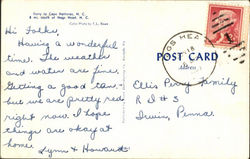 Ferry to Cape Hatteras, N. C.
8 mi. South of Nags Head, N. C.
Hi Folks,
Having a wonderful
time. The weather
and water are fine.
Getting a good tan-
but we are pretty red
right now. Hope
things are okay at
home
Lynn & Howard
NAGS HEAD
18
POST CARD
Ellis Perry Family
R D # 3
Irwin, Penna.